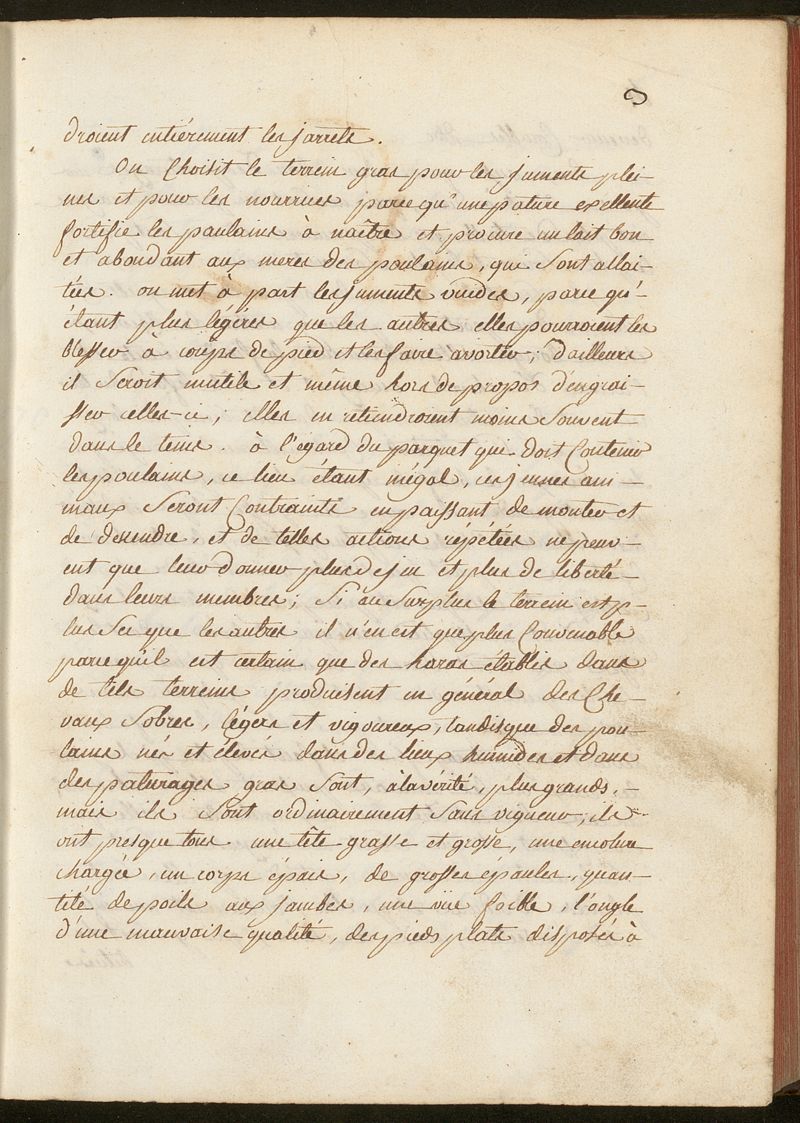 3
droient entiérement les jarrets.
On Choisit le terrein gras pour les juments plei-
nes et pour les nourrices parce qu'une pature exellente
fortifie les poulains à naître et procure un lait bon
et abondant aux meres des poulains, qui Sont allai-
tées. on met à part les juments vuides, parce qu'-
étant plus légéres que les autres elles pourroient les
blesser à coups de pied et les faire avorter; d'ailleurs
il Seroit inutile et même hors de propos d'engrai-
sser celles-ci; elles en retiendroient moins Souvent
dans le tems. à l'egard du parquet qui doit Contenir
les poulains, ce lieu étant inégal, ces jeunes ani-
maux Seront Contraints en paissant de monter et
de desendre, et de telles actions répétées ne peuv-
ent que leur donner plus de jeu et plus de liberté-
dans leurs membres; Si au Surplus le terrein est p-
lus Sec que les autres il n'en est que plus Convenable
parce qu'il est certain que des haras établis dans
de tels terreins produisent en général des Che-
vaux Sobres, légers et vigoureux, tandisque des pou-
lains nés et élevés dans des lieux humides et dans
des paturages gras Sont, à la vérité, plus grands, -
mais ils Sont ordinairement Sans vigueur, ils
ont presque tous une tête grasse et grosse, une encolure
chargée, un corps épais, de grosses épaules, quan-
tité de poils aux jambes, une vüe foible, l'ongle
d'une mauvaise qualité, des pieds plats disposés à